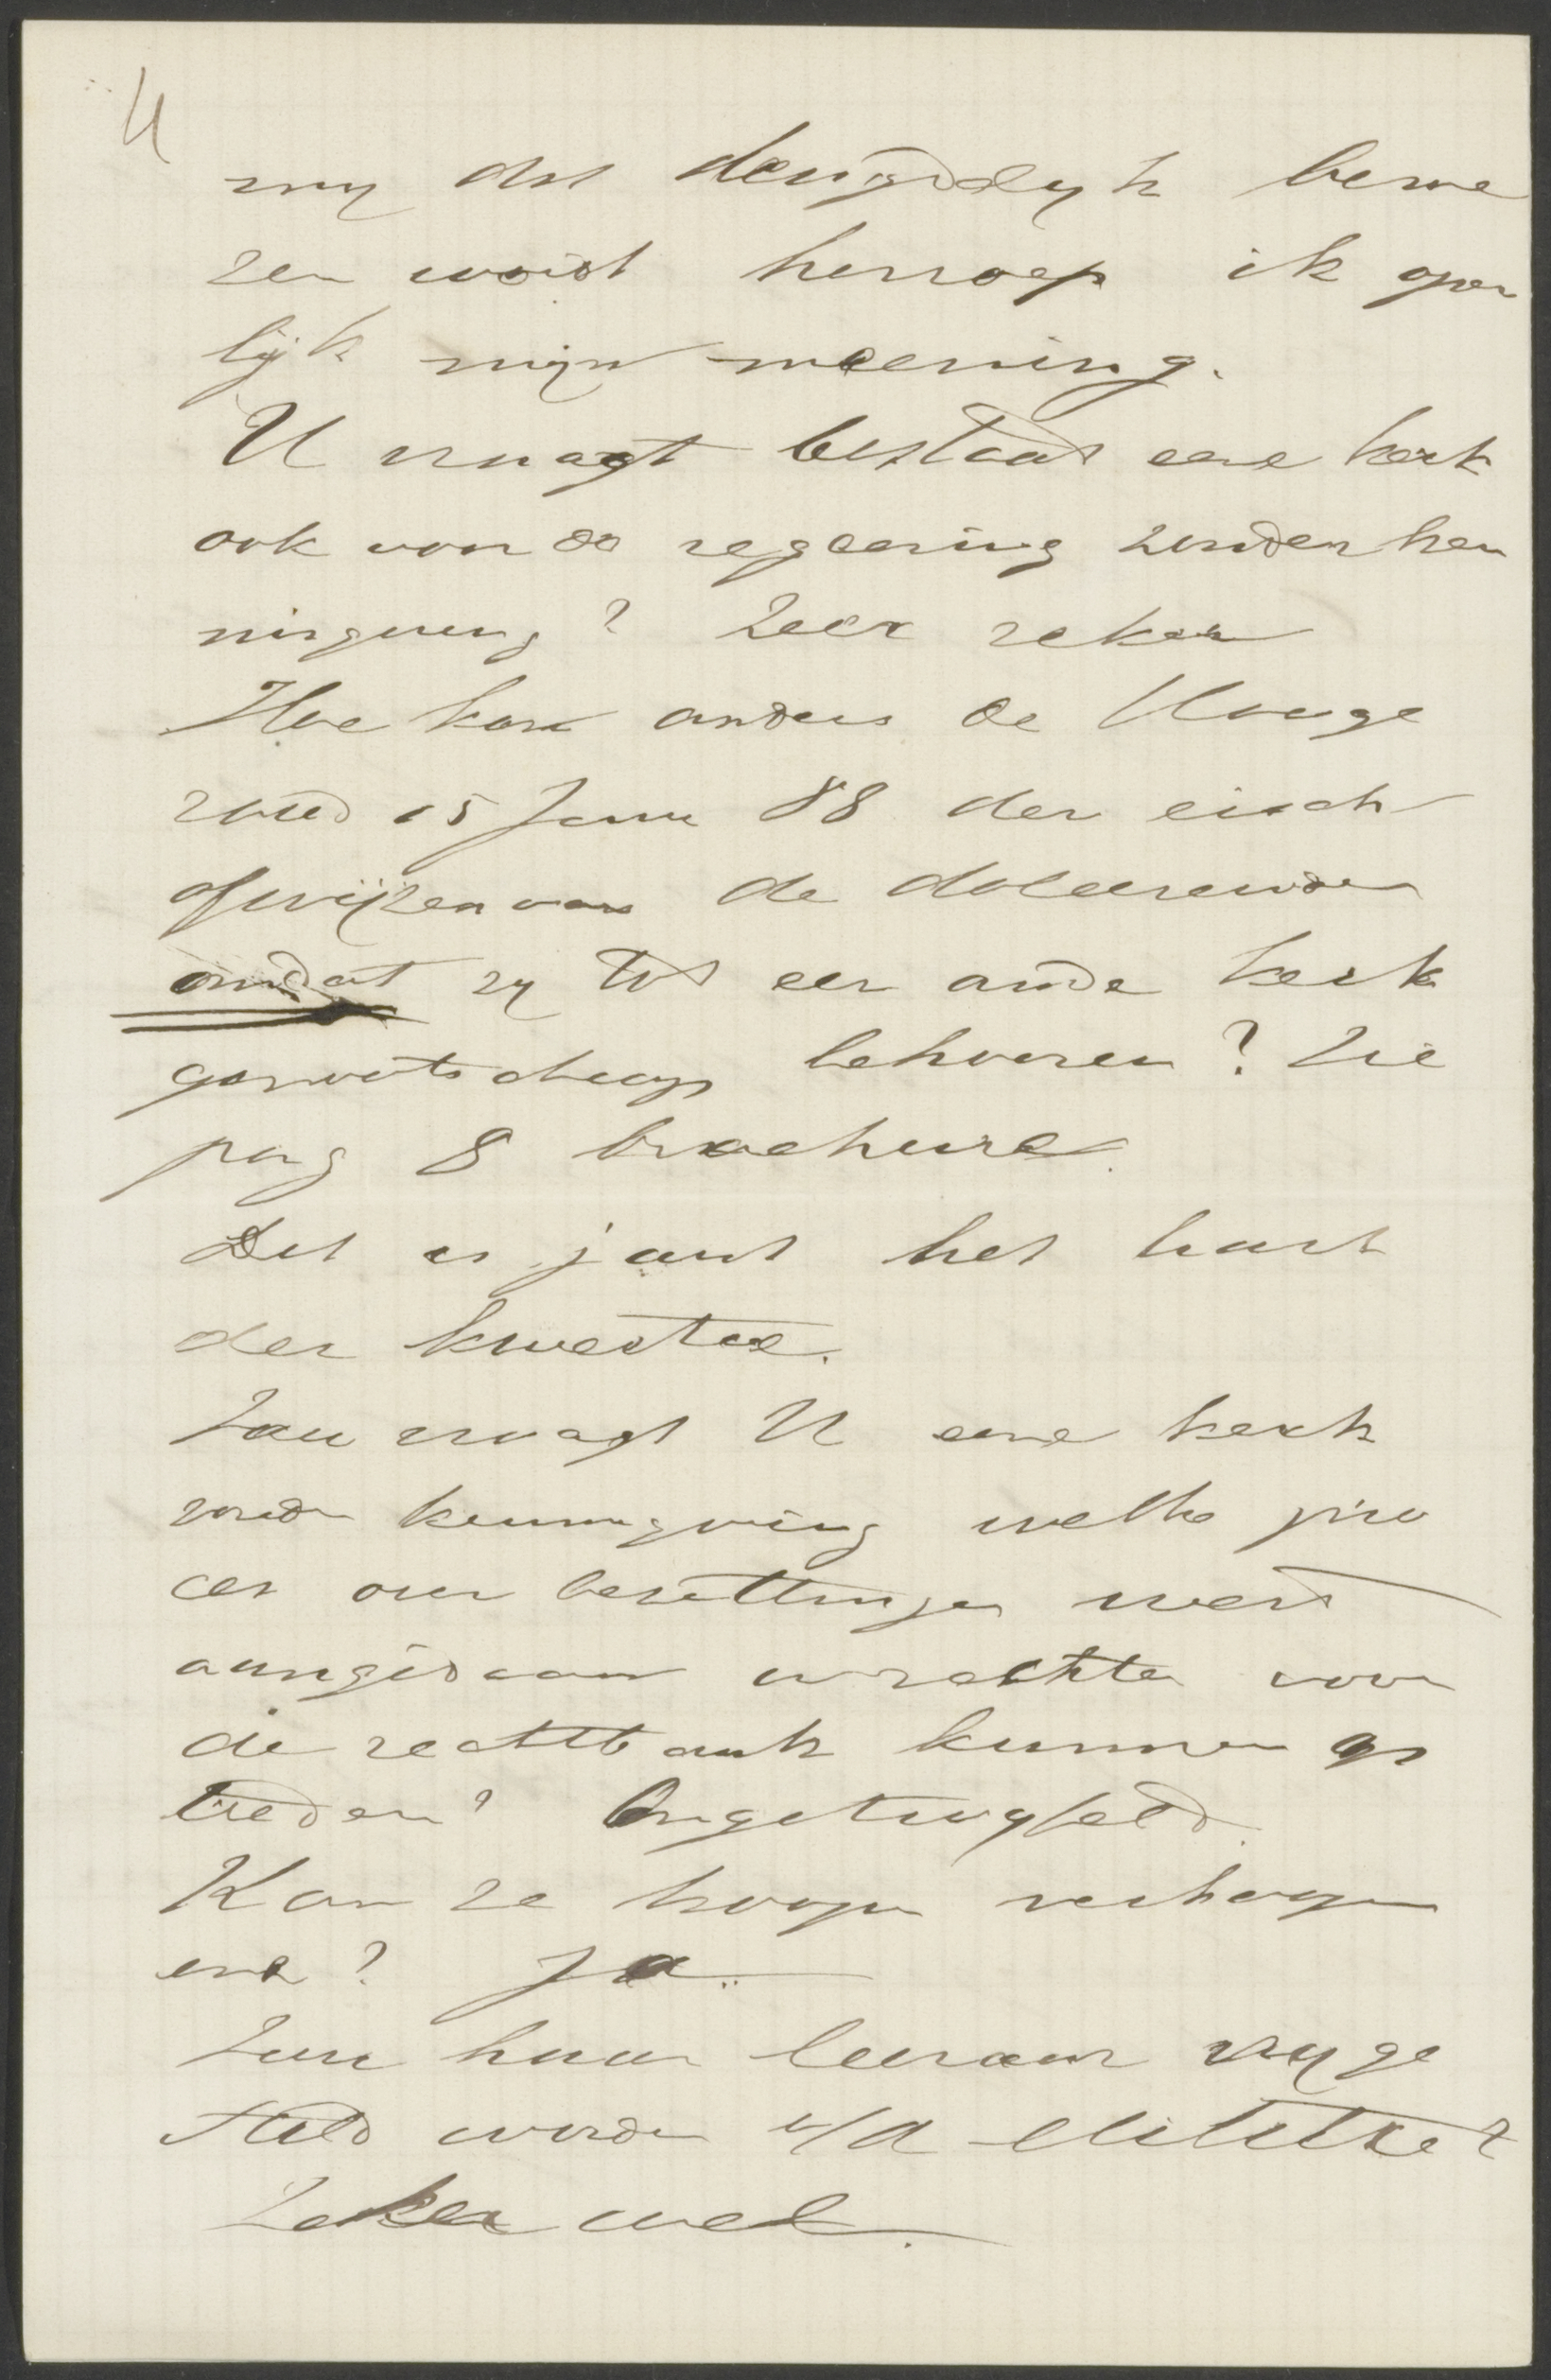 4
mij dat deugdelijk bewe
zen wordt herroep ik open
lijk mijn meening.
U vraagt bestaat eene kerk
ook voor de regeering zonder ken
nisgeving? Zeer zeker
Hoe kan anders de Hooge
raad 15 Juni 88 den eisch
afwijzen van de doleerenden
omdat zij tot een ander kerk
genootschap behooren? Zie
pag 8 brochure.
Dit is juist het hart
der kwestie.
Zou vraagt U eene kerk
zonder kennisgeving welke pro
ces over bezittingen werd
aangedaan in rechten voor
de rechtbank kunnen op
treden? Ongetwijfeld.
Kan ze koopen verkoopen
enz? Ja.
Zou haar leeraar vrijge
steld worden v/d militie?
Zeker wel.